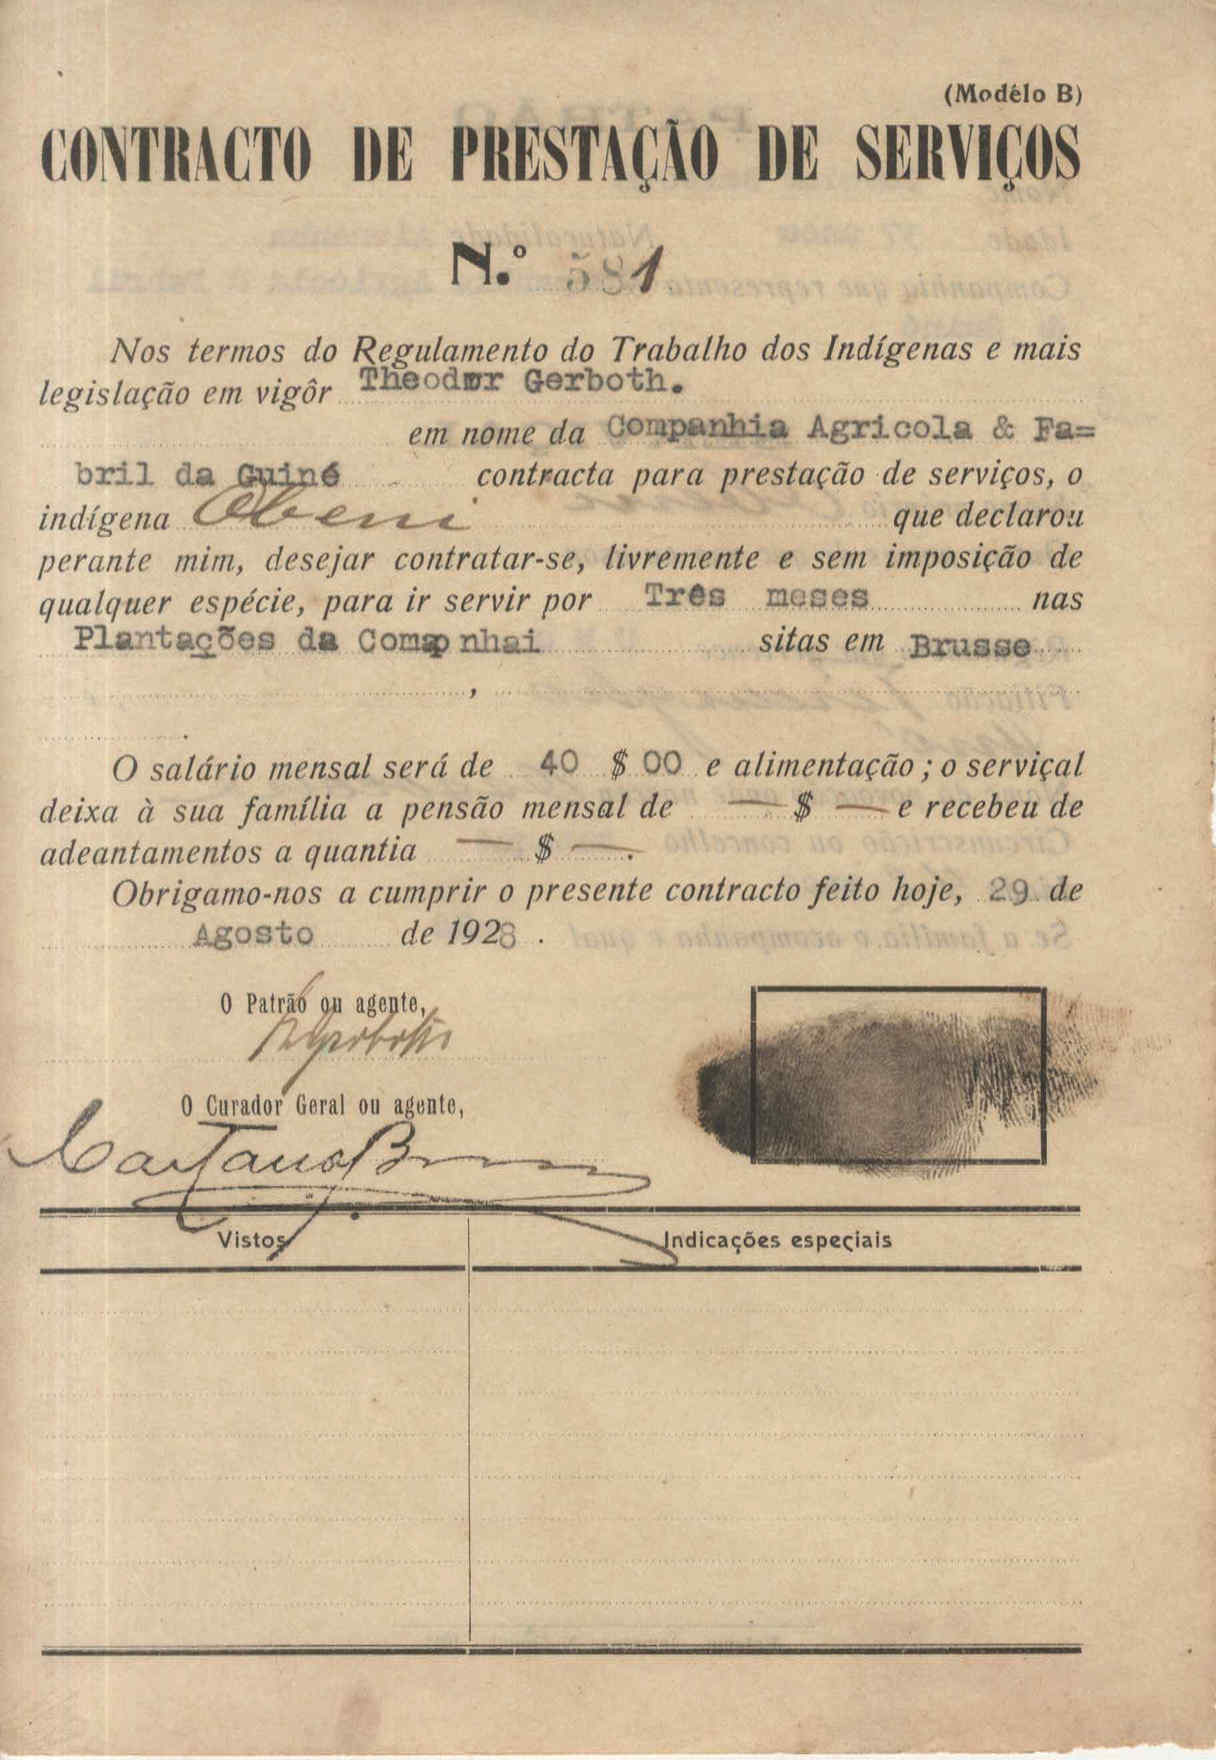 (Modêlo B)
CONTRACTO DE PRESTAÇÃO DE SERVIÇOS
N.º 581
Nos termos do Regulamento do Trabalho dos Indígenas e mais
legislação em vigôr Theodor Gerboth.
em nome da Companhia Agricola & Fa=
bril da Guiné contracta para prestação de serviços, o
indígena Obeni que declarou
perante mim, desejar contratar-se, livremente e sem imposição de
qualquer espécie, para ir servir por Três meses nas
Plantações da Comapnhai sitas em Brusse
,
.
O salário mensal será de 40 $ 00 e alimentação; o serviçal
deixa à sua família a pensão mensal de — $ — e recebeu de
adeantamentos a quantia — $ —.
Obrigamo-nos a cumprir o presente contracto feito hoje, 29 de
Agosto de 1928.
O Patrão ou agente,
O Curador Geral ou agente,
Caetano
Vistos Indicações especiais